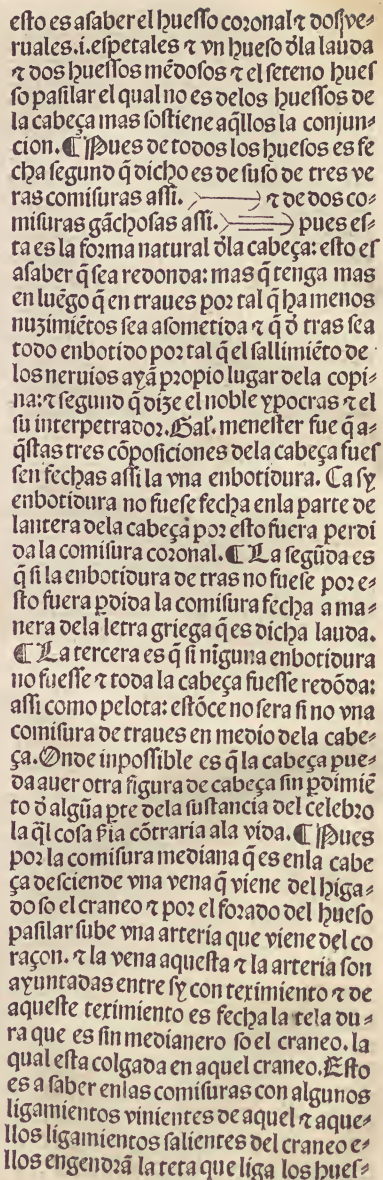 esto es a saber el huesso coronal ⁊ dos ve⸗
ruales.i.espetales ⁊ vn hueso d̄la lauda
⁊ dos huessos mēdosos ⁊ el seteno hues
so pasilar el qual no es delos huessos de
la cabeça mas sostiene aq̄llos la conjun⸗
cion.¶ Pues de todos los huesos es fe
cha segund q̄ dicho es de suso de tres ve
ras comisuras assi. ⁊ de dos co⸗
misuras gāchosas assi. pues es⸗
ta es la forma natural d̄la cabeça: esto es
a saber q̄ sea redonda: mas q̄ tenga mas
en luēgo q̄ en traues por tal q̄ ha menos
nuzimiētos sea asometida ⁊ q̄ d̄ tras sea
todo enbotido por tal q̄ el sallimiēto de
los neruios ayā propio lugar dela copi⸗
na:⁊ segund q̄ dize el noble ypocras ⁊ el
su interpetrador.Gal̄. menester fue q̄ a⸗
q̄stas tres cōposiciones dela cabeça fues
sen fechas assi la vna enbotidura. Ca sy
enbotidura no fuese fecha enla parte de
lantera dela cabeça por esto fuera perdi
da la comisura coronal.¶ La segūda es
q̄ si la enbotidura de tras no fuese por e⸗
sto fuera ꝑdida la comisura fecha a ma⸗
nera dela letra griega q̄ es dicha lauda.
¶ La tercera es q̄ si ninguna enbotidura
no fuesse ⁊ toda la cabeça fuesse redōda:
assi como pelota: estōce no sera si no vna
comisura de traues en medio dela cabe⸗
ça.Onde inpossible es q̄ la cabeça pue⸗
da auer otra figura de cabeça sin ꝑdimiē
to d̄ algūa ꝑte dela sustancia del celebro
la q̄l cosa s̄ia cōtraria ala vida.¶ Pues
por la comisura mediana q̄ es enla cabe
ça desciende vna vena q̄ viene del higa⸗
do so el craneo ⁊ por el forado del hueso
pasilar sube vna arteria que viene del co
raçon. ⁊ la vena aquesta ⁊ la arteria son
ayuntadas entre sy con teximiento ⁊ de
aqueste teximiento es fecha la tela du⸗
ra que es sin medianero so el craneo. la
qual esta colgada en aquel craneo.Esto
es a saber enlas comisuras con algunos
ligamientos vinientes de aquel ⁊ aque⸗
llos ligamientos salientes del craneo e⸗
llos engendrā la teta que liga los hues⸗